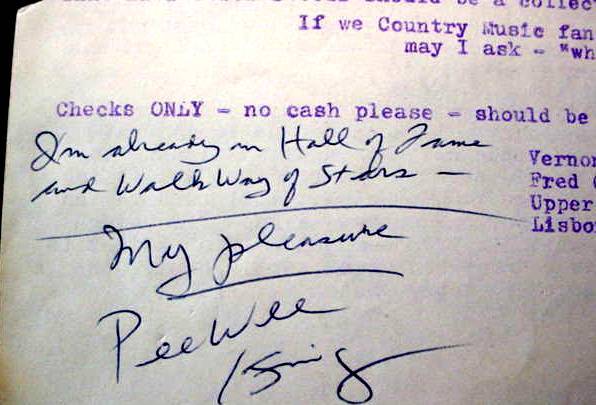 should be a collec
If we Country Music fan
may I ask - "wh
Checks ONLY - no cash please - should be
I'm already in Hall of Fame
and WalkWay of Stars —
Vernon
Fred
Upper
Lisbo
My pleasure
PeeWee
King